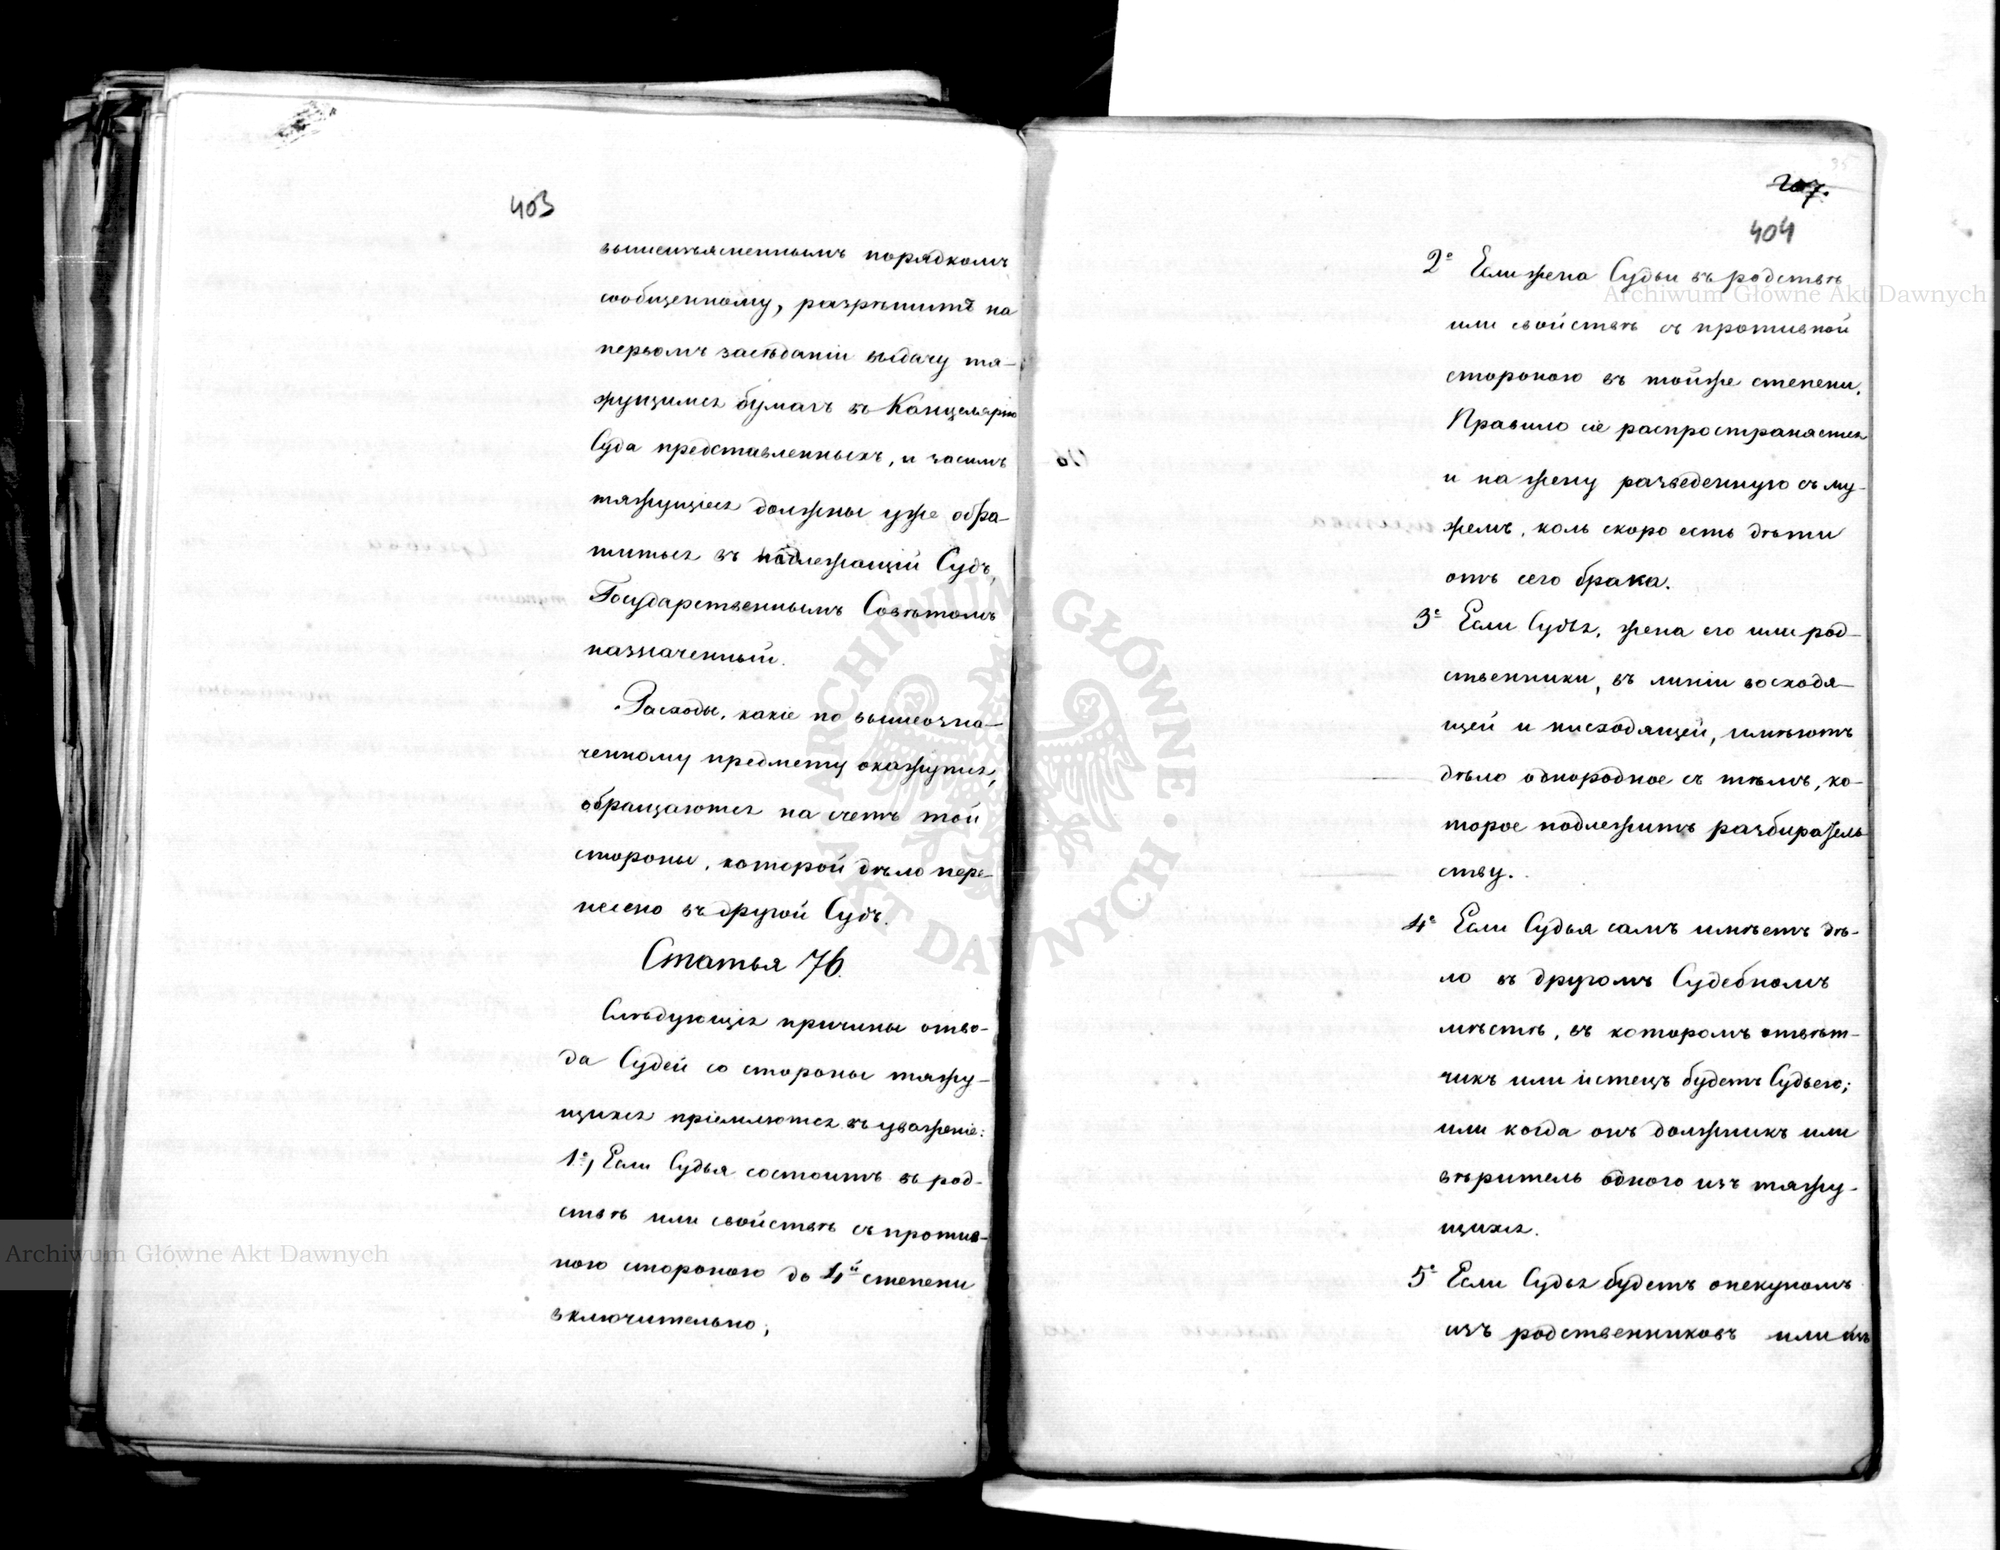 403
вышеизъясненнымъ порядкомъ
сообщенному, разрѣшитъ на
первомъ засѣданіи выдачу тя-
жущимся бумагъ въ Канцелярію
Суда представленныхъ, и засимъ
тяжущіеся должны уже обра-
титься въ надлежащій Судъ,
Государственнымъ Совѣтомъ
назначенный.
Расходы, какіе по вышеозна-
ченному предмету окажутся,
обращаются на счетъ той
стороны, которой дѣло пере-
несено въ другой Судъ.
Статья 76.
Слѣдующія причины отво-
да Судей со стороны тяжу-
щихся пріемлются въ уваженіе:
1е, Если Судья состоитъ въ род-
ствѣ или свойствѣ съ против-
ною стороною до 4й степени
включительно;
35
207.
404
2е Если жена Судьи въ родствѣ
или свойствѣ съ противной
стороною въ тойже степени.
Правило сіе распространяется
и на жену разведенную съ му-
жемъ, коль скоро есть дѣти
отъ сего брака.
3е Если Судья, жена его или род-
ственники, въ линіи восходя-
щей и нисходящей, имѣютъ
дѣло однородное съ тѣмъ, ко-
торое подлежитъ разбиратель
ству.
4е Если Судья самъ имѣетъ дѣ-
ло въ другомъ Судебномъ
мѣстѣ, въ которомъ отвѣт-
чикъ или истецъ будетъ Судьею;
или когда онъ должникъ или
вѣритель одного изъ тяжу-
щихся.
5е Если Судья будетъ опекуномъ
изъ родственниковъ или изъ
Archiwum Główne Akt Dawnych
Archiwum Główne Akt Dawnych
ARCHIWUM GŁÓWNE AKT DAWNYCH